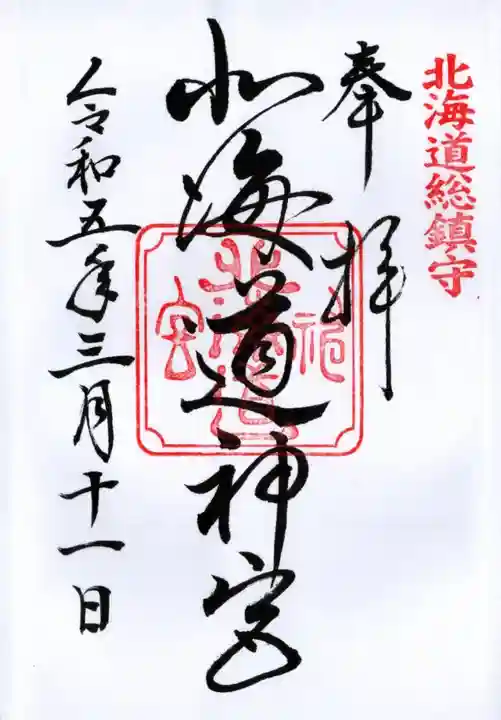 北海道総鎮守
奉拝
北海道神宮
令和五年三月十一日
北海道
神
宮